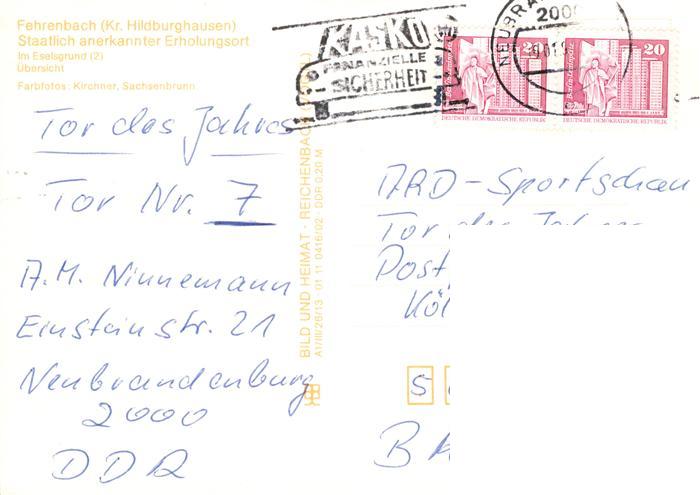 Fehrenbach (Kr. Hildburghausen)
Staatlich anerkannter Erholungsort
Im Eselsgrund (2)
Übersicht
Farbfotos: Kirchner, Sachsenbrunn
Tor des Jahres
Tor Nr. 7
A. M. Ninnemann
Einsteinstr. 21
Neubrandenburg
2000
DDR
BILD UND HEIMAT · REICHENBACH
A1/III/26/13 · 01 11 0416/02 · DDR 0,20 M
KASKO
FINANZIELLE
SICHERHEIT
NEUBRA
200
20
20
DEUTSCHE DEMOKRATISCHE REPUBLIK
DEUTSCHE DEMOKRATISCHE REPUBLIK
ARD-Sportschau
Tor des Jahres
Post
Köl
5